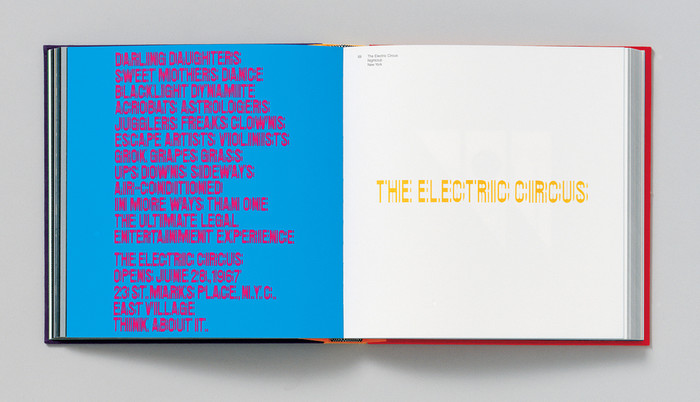 DARLING DAUGHTERS
SWEET MOTHERS DANCE
BLACKLIGHT DYNAMITE
ACROBATS ASTROLOGERS
JUGGLERS FREAKS CLOWNS
ESCAPE ARTISTS VIOLINISTS
GROK GRAPES GRASS
UPS DOWNS SIDEWAYS
AIR-CONDITIONED
IN MORE WAYS THAN ONE
THE ULTIMATE LEGAL
ENTERTAINMENT EXPERIENCE
THE ELECTRIC CIRCUS
OPENS JUNE 28, 1967
23 ST. MARKS PLACE, N.Y.C.
EAST VILLAGE
THINK ABOUT IT.
The Electric Circus
Nightclub
New York
THE ELECTRIC CIRCUS